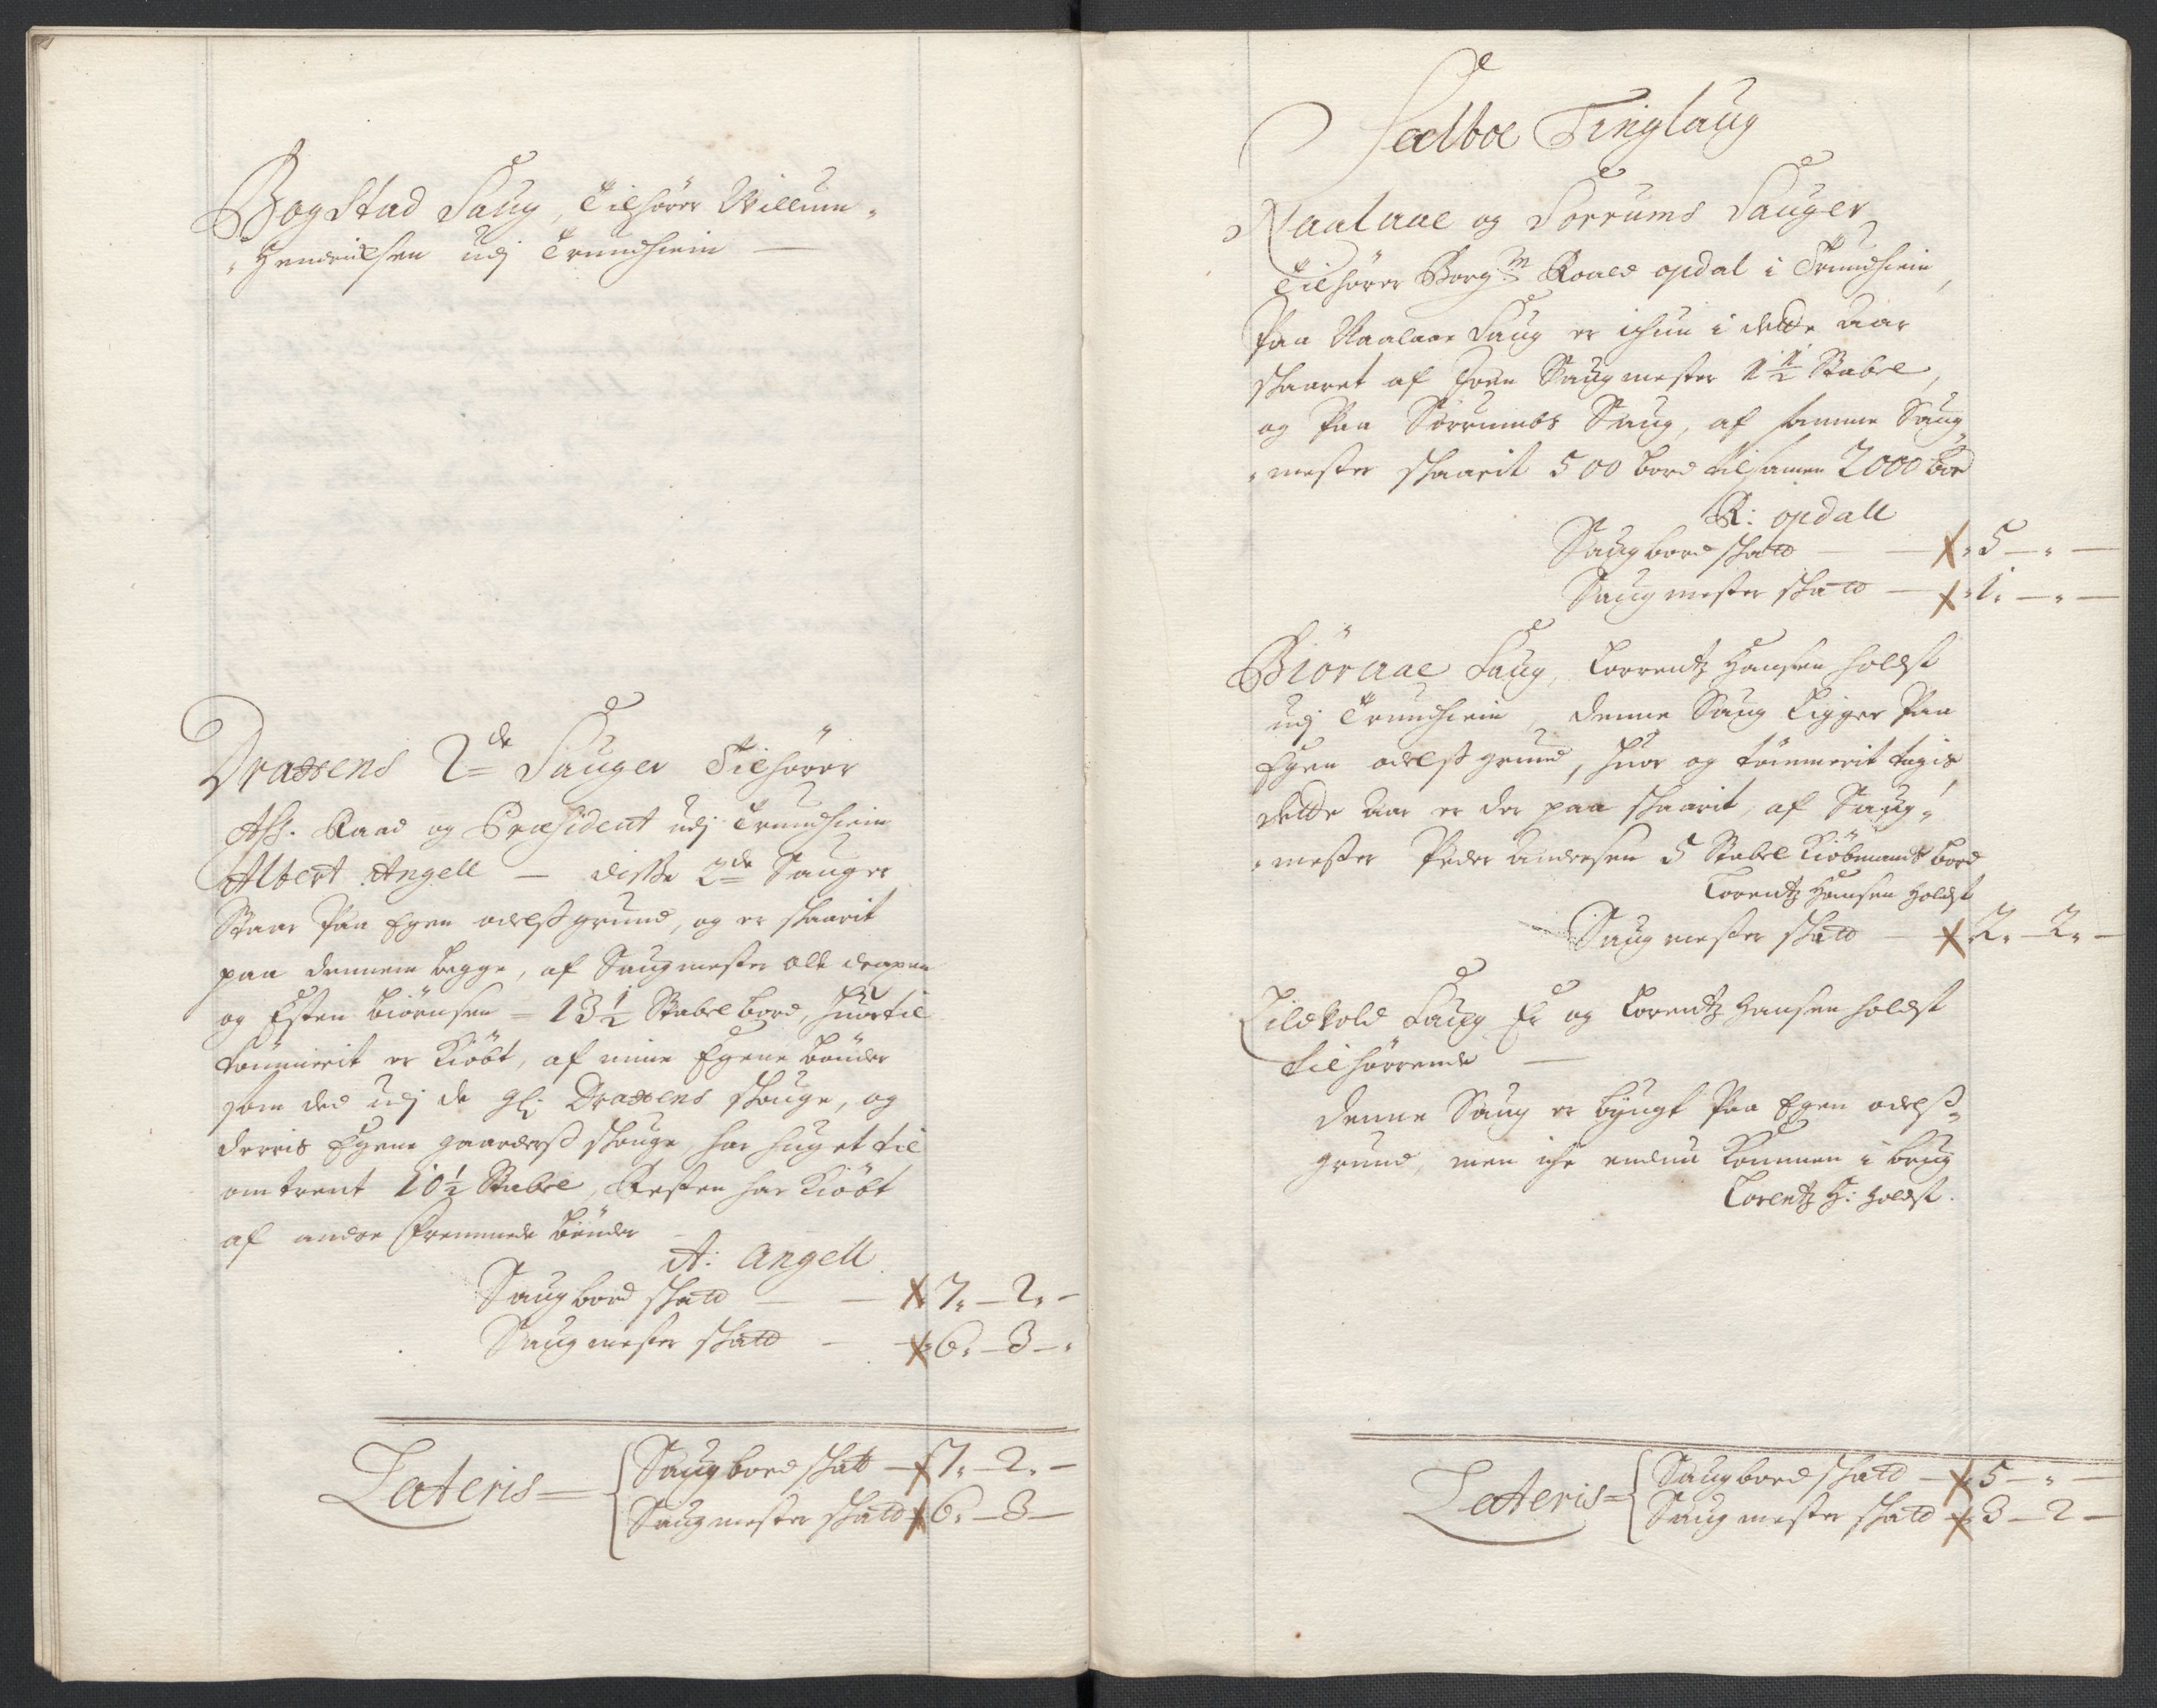 Bogstad Saug, Tilhörer Willum
Hendrichsen udj Trundhiem
Draxsens 2de Sauger Tilhörer
Ass. Raad og Præsident udj Trundhiem
Albert Angell – disse 2de Sauger
Staar paa Egen odelss grund, og er skaarit
paa dennem begge, af Saugmester Ole
og Esten Biörnsen = 13½ Stabel bord, huortil
tömmerit er Kiöbt, af mine Egene bönder
som ded udj de Draxsens skouge, og
derris Egene gaarderss skouge, har hugget til
omtrent 10½ Stabel, Resten har Kiöbt
af andre fremmede bönder
A: Angell
Saugbord skatt – X 7. – 2. –
Saugmester skatt – X 6. – 3 – .
Lateris = Saugbord skatt – X 7. – 2. –
Saugmester skatt X 6. – 3 –
Sælboe Tinglaug
Naalaae og Sörrums Sauger
Tilhörer Borgm Roald opdal i Trundhiem,
Paa Naalaae Saug er ichun i dette Aar
skaaret af Saugmester 1½ Stabel,
og paa Sörrumbs Saug, af samme Saug
mester skaarit 500 bord tilsamen 2000 bord
R: opdall
Saugbord skatt – X 5 – . –
Saugmester skatt – X 1. – . –
Biöraae Saug, Lorrentz Hansen Holdst
udj Trundhiem, denne Saug Ligger paa
Egen odelss grund, huor og tömmerit tagis
dette Aar er der paa skaarit, af Saug
mester Peder Andersen 5 Stabel Kiöbmands bord
Lorentz Hansen Holdst
Saugmester skatt – X 2. – 2. –
Lildvold Saug Er og Lorentz Hansen Holdst
tilhörrende –
denne Saug er bÿugt paa Egen odelss
grund, men iche endnu Kommen i brug
Lorentz H: Holdst.
Lateris = Saugbord skatt – X 5 – . –
Saugmester skatt X 3 – 2 –